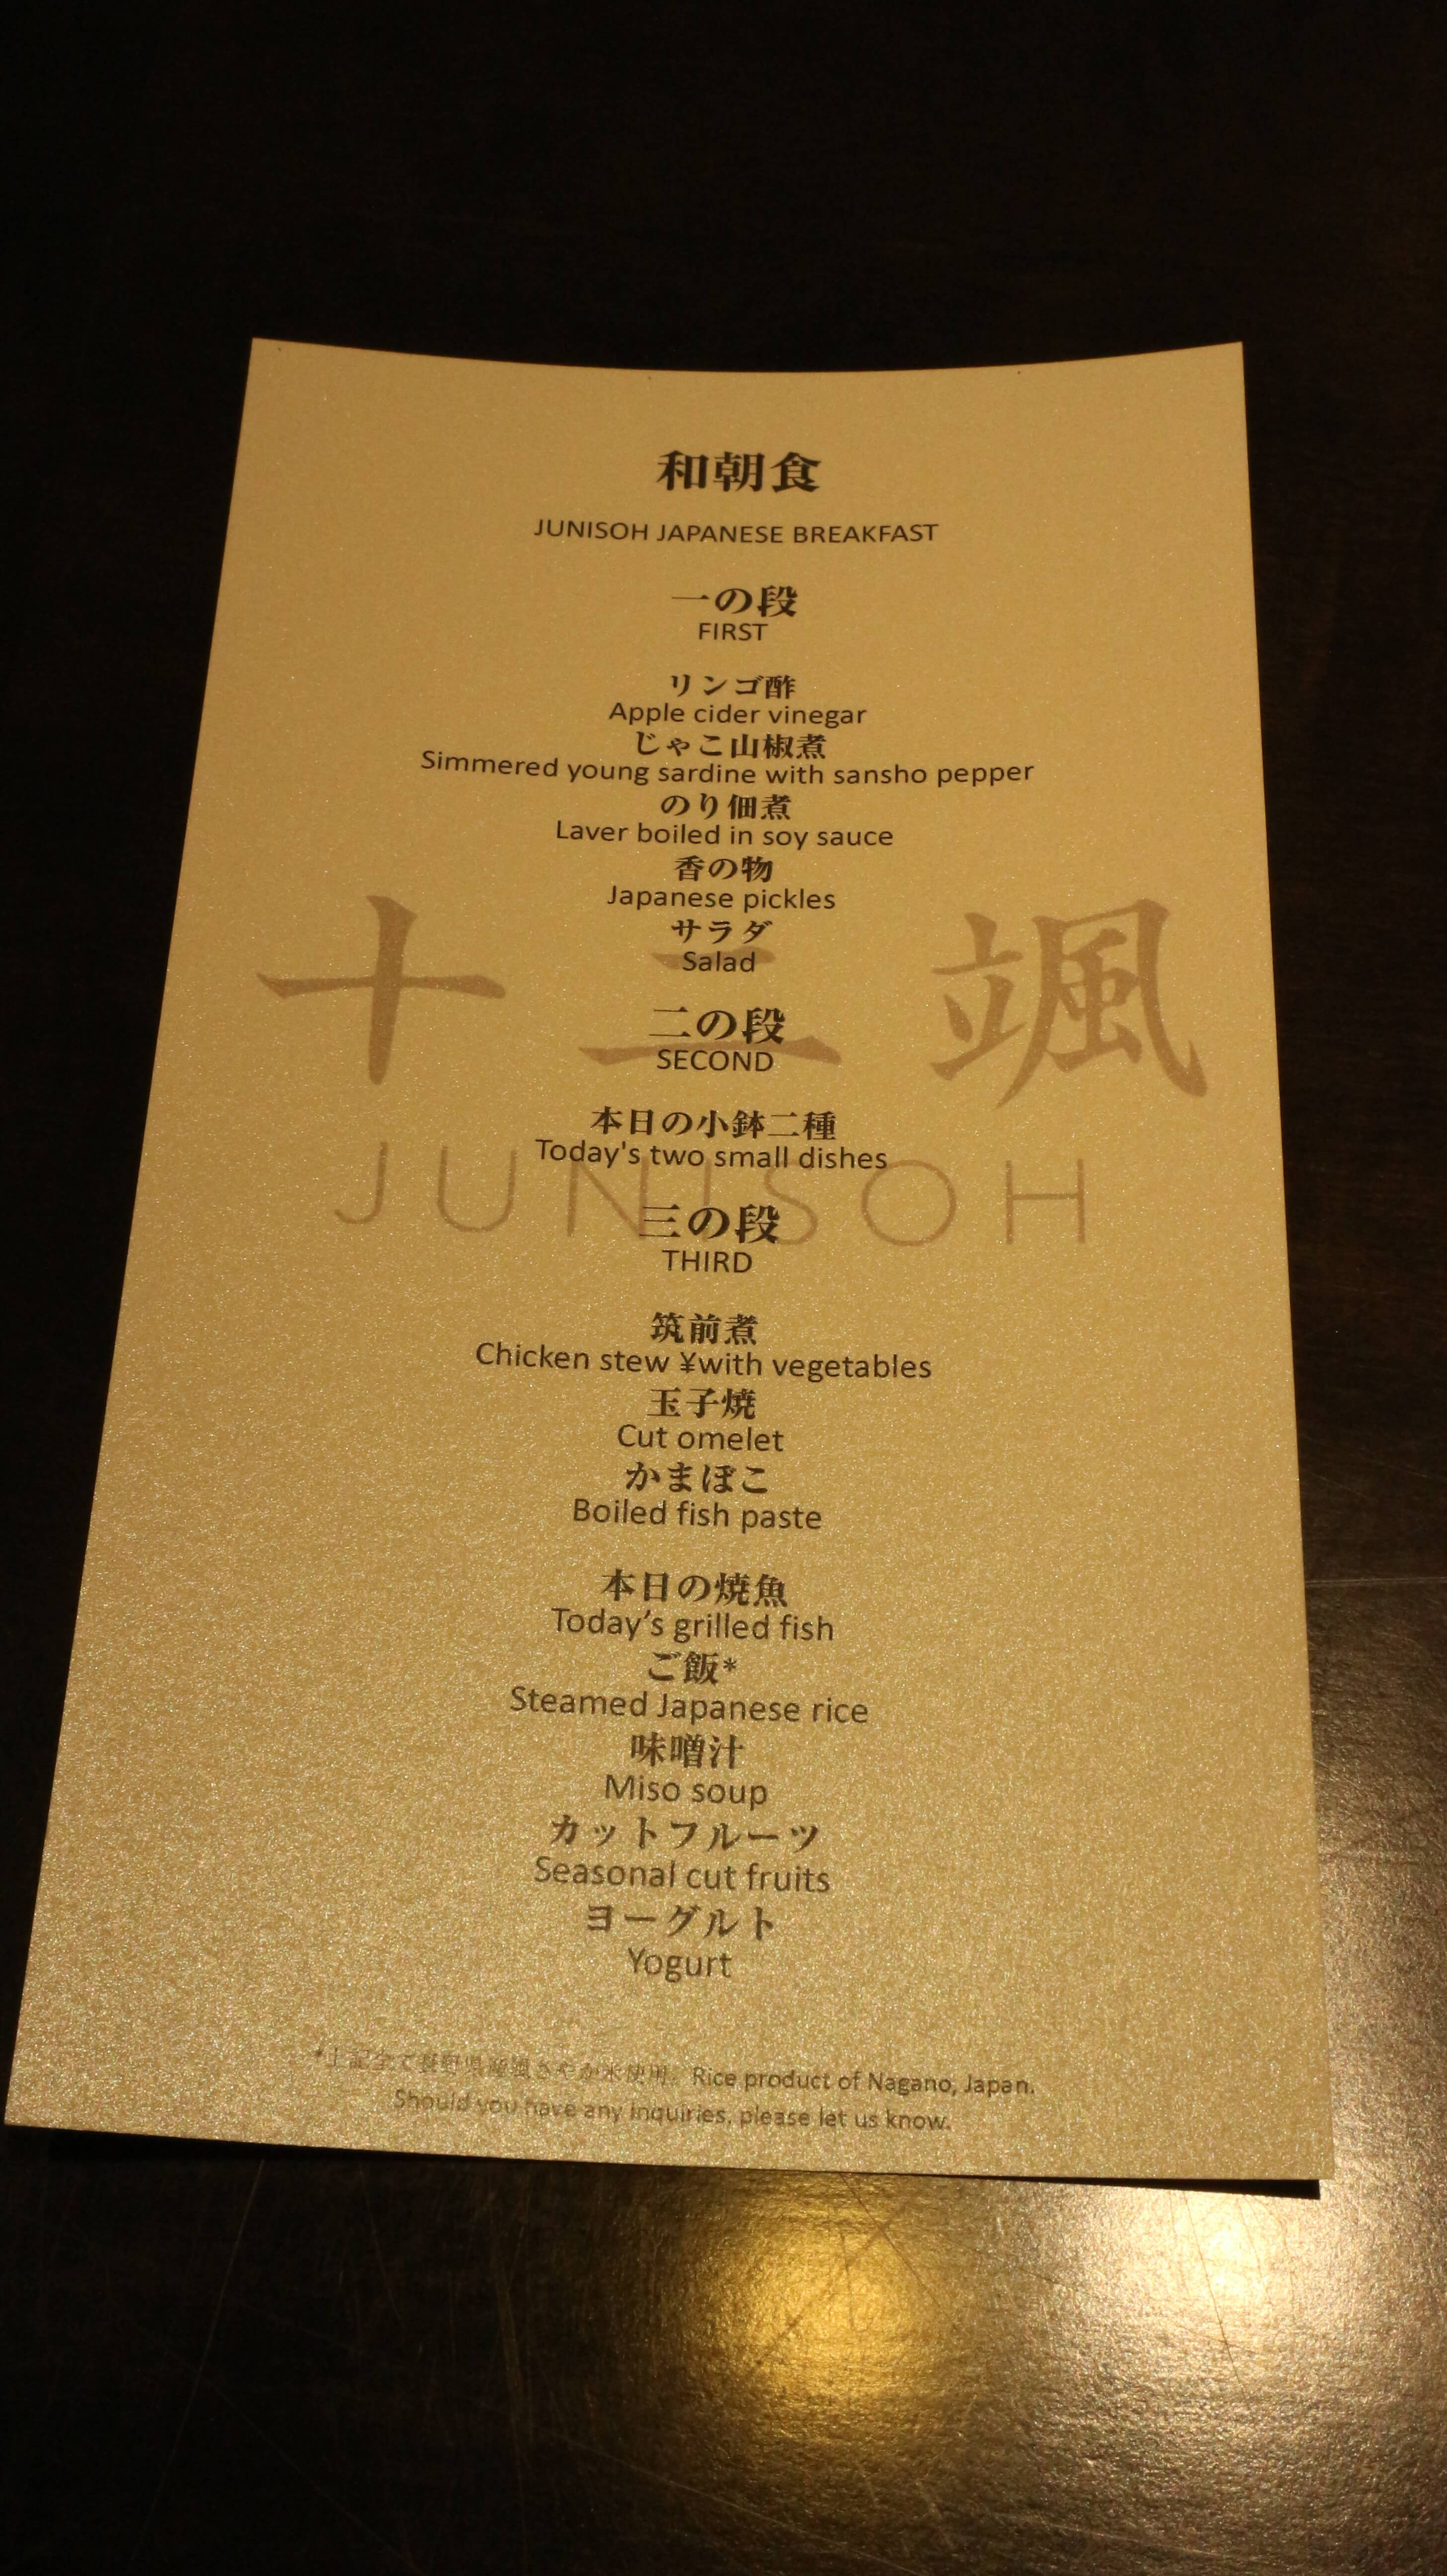 和朝食
JUNISOH JAPANESE BREAKFAST
一の段
FIRST
リンゴ酢
Apple cider vinegar
じゃこ山椒煮
Simmered young sardine with sansho pepper
のり佃煮
Laver boiled in soy sauce
香の物
Japanese pickles
サラダ
Salad
十二颯
二の段
SECOND
本日の小鉢二種
Today's two small dishes
JUNISOH
三の段
THIRD
筑前煮
Chicken stew ¥with vegetables
玉子焼
Cut omelet
かまぼこ
Boiled fish paste
本日の焼魚
Today’s grilled fish
ご飯*
Steamed Japanese rice
味噌汁
Miso soup
カットフルーツ
Seasonal cut fruits
ヨーグルト
Yogurt
*上記全て長野県産風さやか米使用。Rice product of Nagano, Japan.
Should you have any inquiries, please let us know.